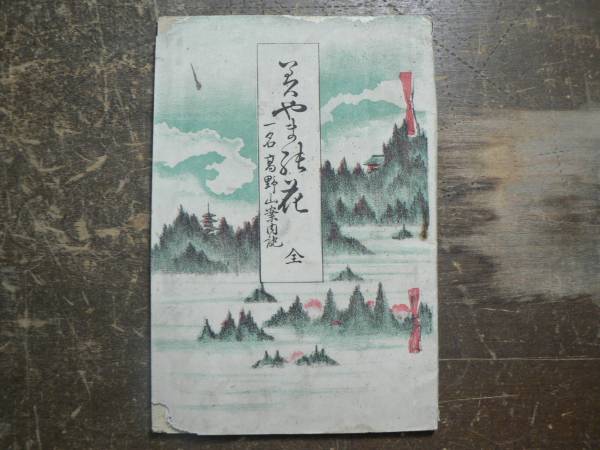 美やま能花
一名 高野山案内記
全